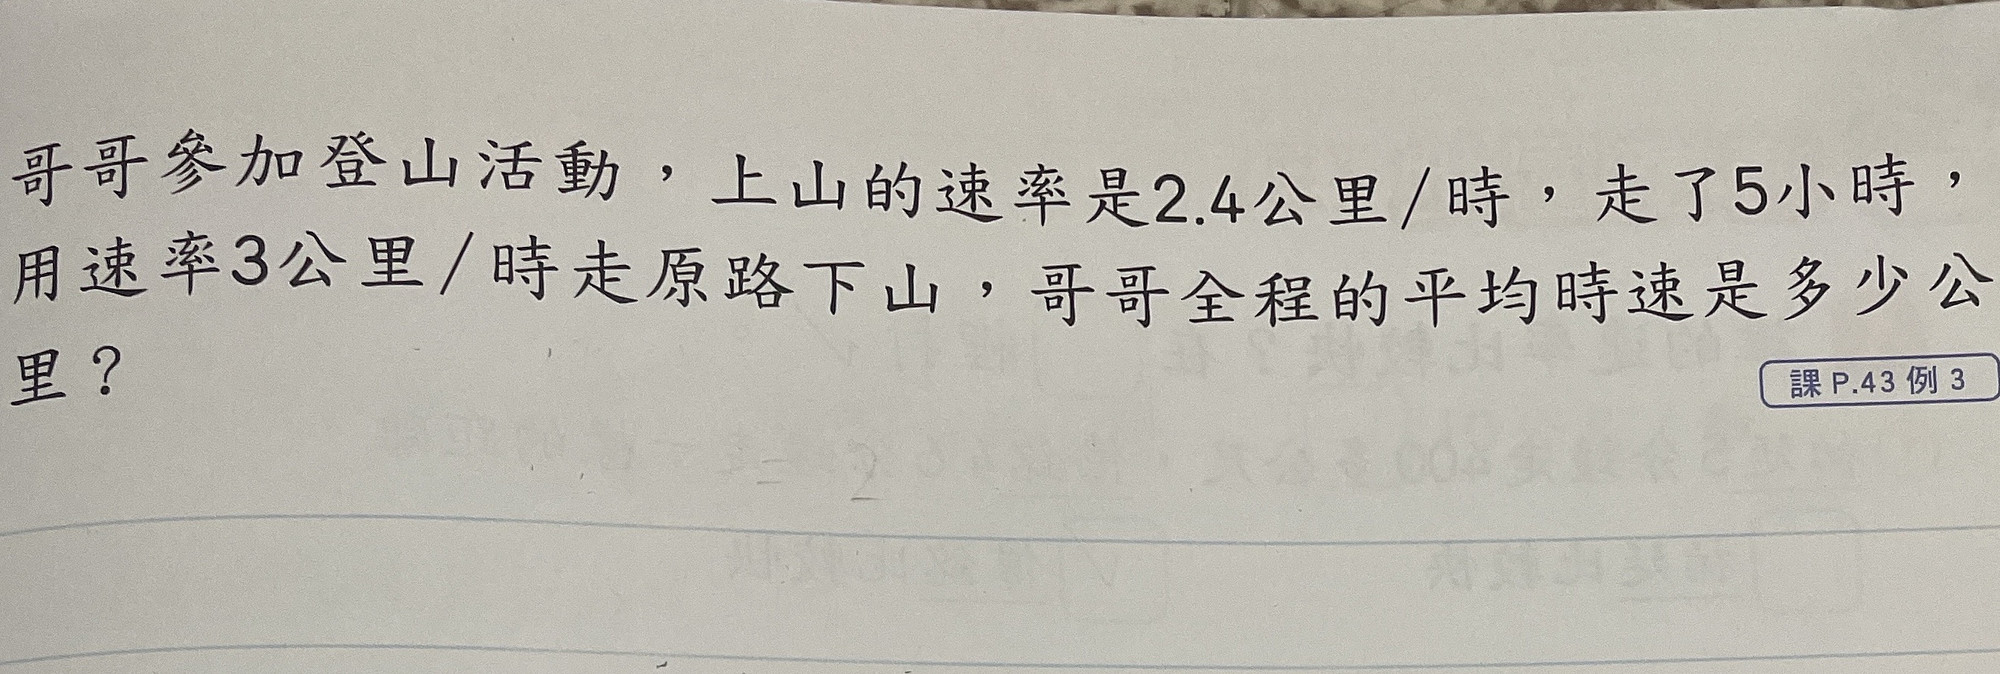 哥哥參加登山活動，上山的速率是2.4公里/時，走了5小時，
用速率3公里/時走原路下山，哥哥全程的平均時速是多少公
里？
課 P.43 例 3